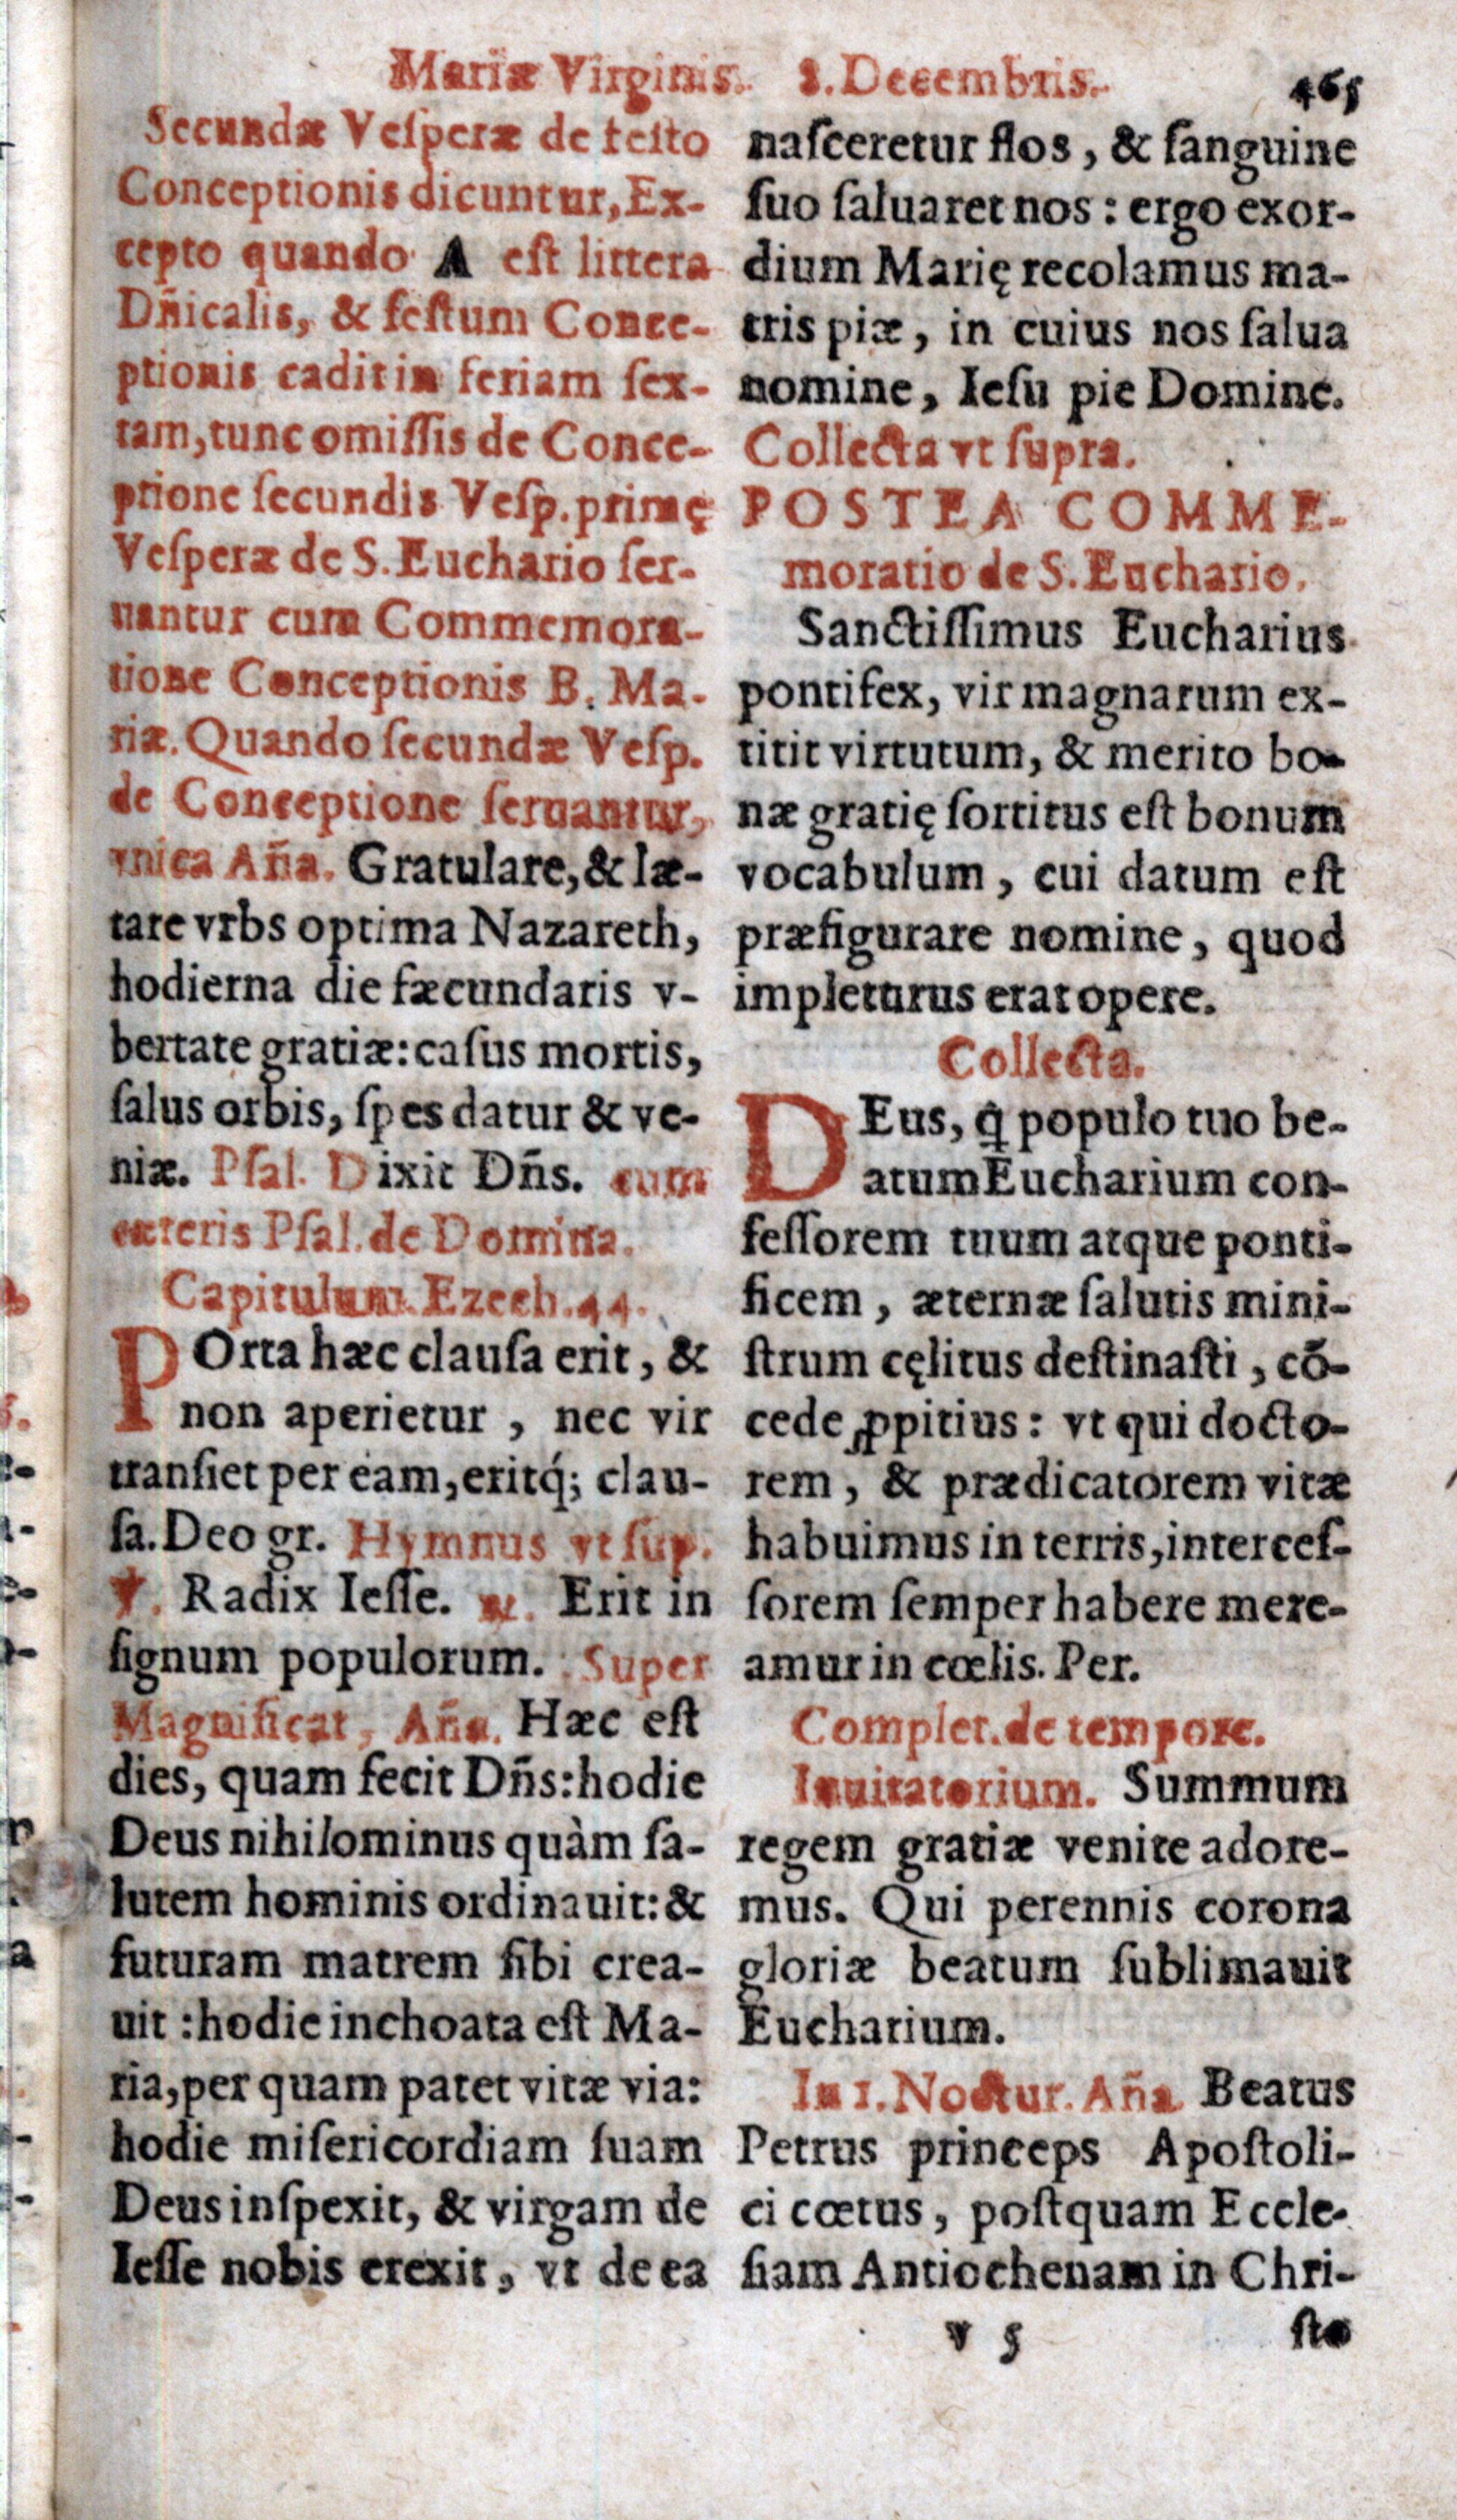 Mariæ Virginis. 8. Decembris. 465
Secundæ Veſperæ de feſto
Conceptionis dicuntur, Ex-
cepto quando A eſt littera
Dñicalis, & feſtum Conce-
ptionis cadit in feriam ſex-
tam, tunc omiſſis de Conce-
ptione ſecundis Veſp. primę
Veſperæ de S. Euchario ſer-
uantur cum Commemora-
tione Conceptionis B. Ma-
riæ. Quando ſecundæ Veſp.
de Conceptione ſeruantur,
vnica Aña. Gratulare, & læ-
tare vrbs optima Nazareth,
hodierna die fæcundaris v-
bertate gratiæ: caſus mortis,
ſalus orbis, ſpes datur & ve-
niæ. Pſal. Dixit Dñs. cum
cæteris Pſal. de Domina.
Capitulum. Ezech. 44.
POrta hæc clauſa erit, &
non aperietur, nec vir
tranſiet per eam, eritq́; clau-
ſa. Deo gr. Hymnus vt ſup.
℣. Radix Ieſſe. ℟. Erit in
ſignum populorum. Super
Magnificat, Aña. Hæc eſt
dies, quam fecit Dñs: hodie
Deus nihilominus quàm ſa-
lutem hominis ordinauit: &
futuram matrem ſibi crea-
uit: hodie inchoata eſt Ma-
ria, per quam patet vitæ via:
hodie miſericordiam ſuam
Deus inſpexit, & virgam de
Ieſſe nobis erexit, vt de ea
naſceretur flos, & ſanguine
ſuo ſaluaret nos: ergo exor-
dium Marię recolamus ma-
tris piæ, in cuius nos ſalua
nomine, Ieſu pie Domine.
Collecta vt ſupra.
POSTEA COMME-
moratio de S. Euchario.
Sanctiſſimus Eucharius
pontifex, vir magnarum ex-
titit virtutum, & merito bo-
næ gratię ſortitus eſt bonum
vocabulum, cui datum eſt
præfigurare nomine, quod
impleturus erat opere.
Collecta.
DEus, q̇ populo tuo be-
atum Eucharium con-
feſſorem tuum atque ponti-
ficem, æternæ ſalutis mini-
ſtrum cęlitus deſtinaſti, cō-
cede ꝓpitius: vt qui docto-
rem, & prædicatorem vitæ
habuimus in terris, interceſ-
ſorem ſemper habere mere-
amur in cœlis. Per.
Complet. de tempore.
Inuitatorium. Summum
regem gratiæ venite adore-
mus. Qui perennis corona
gloriæ beatum ſublimauit
Eucharium.
In 1. Noctur. Aña Beatus
Petrus princeps Apoſtoli-
ci cœtus, poſtquam Eccle-
ſiam Antiochenam in Chri-
v 5 ſto